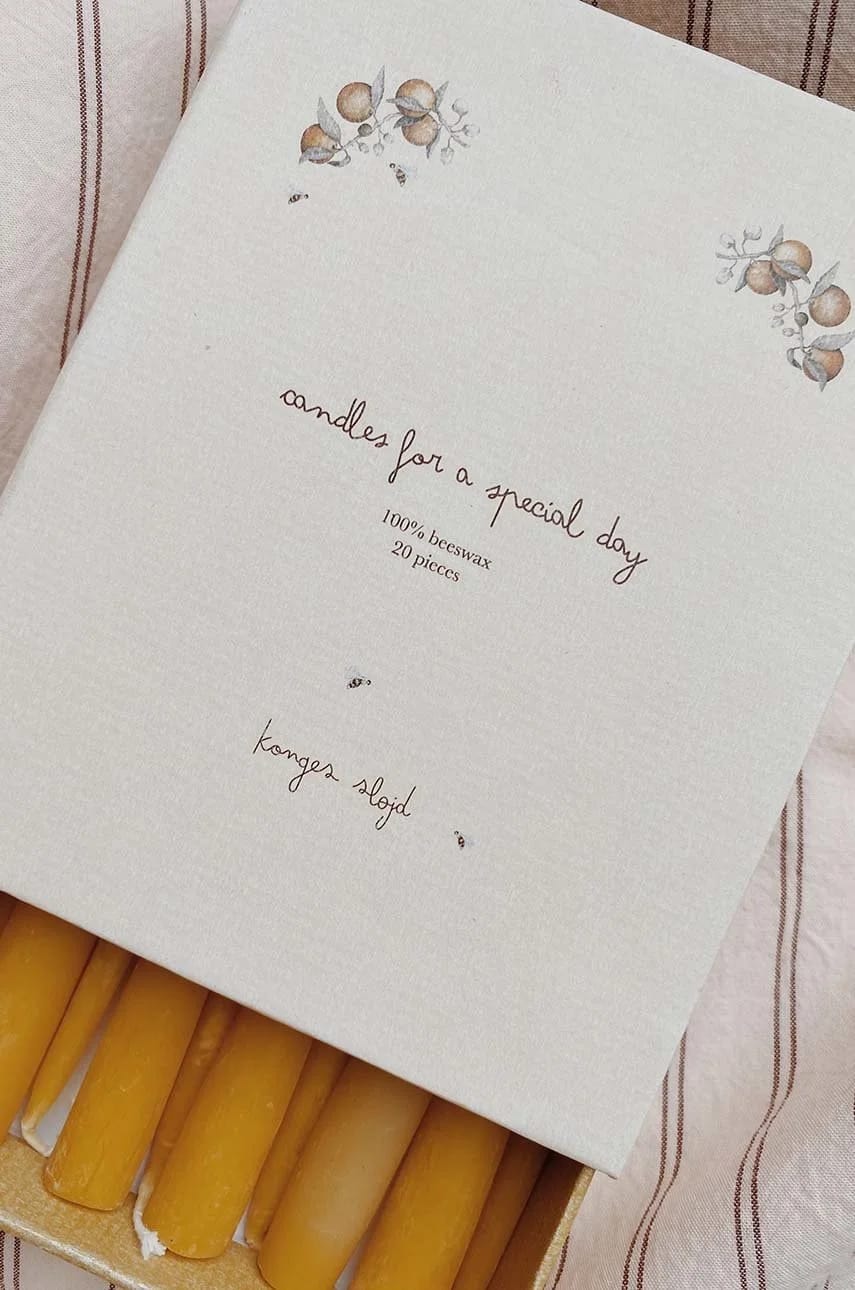 candles for a special day
100% beeswax
20 pieces
konges slojd